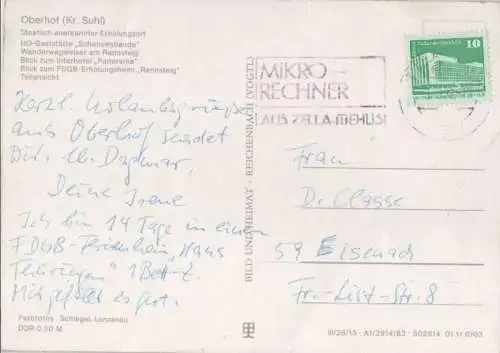 Oberhof (Kr. Suhl)
Staatlich anerkannter Erholungsort
HO-Gaststätte „Schanzenbaude"
Wanderwegweiser am Rennsteig
Blick zum Interhotel „Panorama"
Blick zum FDGB-Erholungsheim „Rennsteig"
Teilansicht
Herzl. Urlaubsgrüße
aus Oberhof sendet
Dir, lb. Dagmar,
Deine Irene
Ich bin 14 Tage in einem
FDGB-Ferienheim „Haus
Thüringen" 1 Bett-Z.
Mir gefällt es gut.
Farbfotos: Schlegel, Lunzenau
DDR 0,20 M
BILD UND HEIMAT · REICHENBACH (VOGTL)
MIKRO-
RECHNER
AUS ZELLA-MEHLIS!
10
Frau
D. Classe
59 Eisenach
Fr.-List-Str. 8
III/26/13 · A1/2914/82 · 502914 01 11 0103